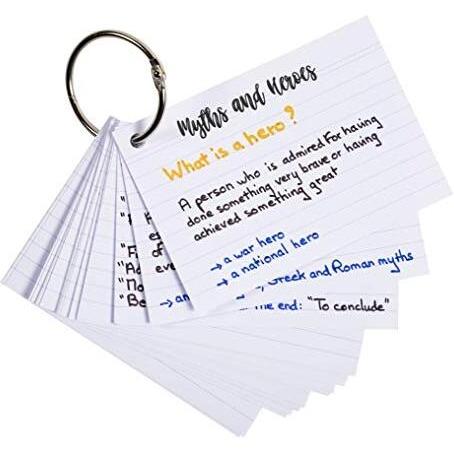 Myths and Heroes
What is a hero?
A person who is admired For having
done something very brave or having
achieved something great
→ a war hero
→ a national hero
Greek and Roman myths
→ an
the end: "To conclude"
of
eve
"Be